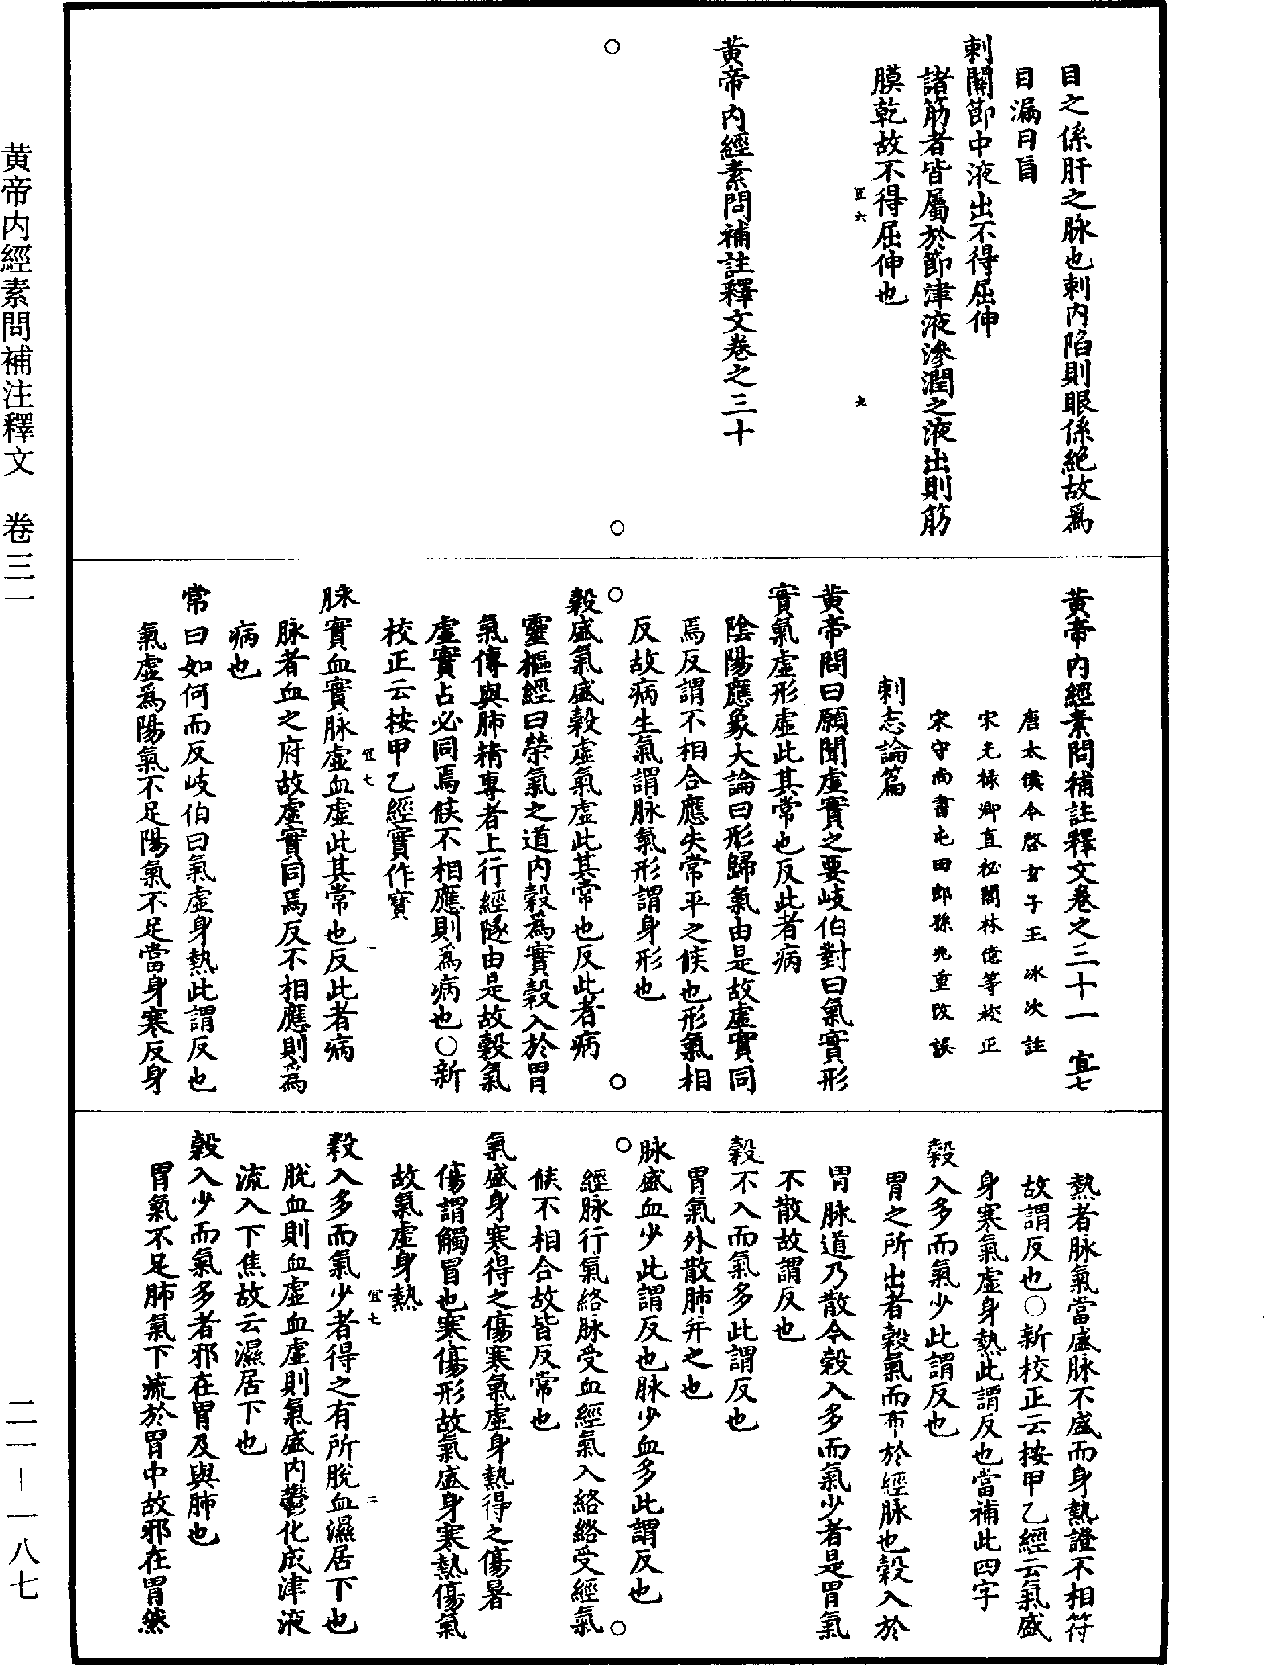 目之係肝之脉也刺内陷則眼係絶故爲
目漏目盲
刺關節中液出不得屈伸
諸筋者皆屬於節津液滲潤之液出則筋
膜乾故不得屈伸也
宜六 九
黄帝内經素問補註釋文卷之三十
黄帝内經素問補註釋文卷之三十一 宜七
唐太僕令啓玄子王冰次註
宋光禄卿直秘閣林億等校正
宋守尚書屯田郎孫兆重改誤
刺志論篇
黄帝問曰願聞虚實之要岐伯對曰氣實形
實氣虚形虚此其常也反此者病
陰陽應象大論曰形歸氣由是故虚實同
焉反謂不相合應失常平之候也形氣相
反故病生氣謂脉氣形謂身形也
穀盛氣盛穀虚氣虚此其常也反此者病
靈樞經曰榮氣之道内穀爲實穀入於胃
氣傳與肺精專者上行經隧由是故穀氣
虚實占必同焉候不相應則爲病也○新
校正云按甲乙經實作寳
宜七 一
脉實血實脉虚血虚此其常也反此者病
脉者血之府故虚實同焉反不相應則爲
病也
常曰如何而反岐伯曰氣虚身熱此謂反也
氣虚爲陽氣不足陽氣不足當身寒反身
熱者脉氣當盛脉不盛而身熱證不相符
故謂反也○新校正云按甲乙經云氣盛
身寒氣虚身熱此謂反也當補此四字
穀入多而氣少此謂反也
胃之所出者穀氣而布於經脉也穀入於
胃脉道乃散今穀入多而氣少者是胃氣
不散故謂反也
穀不入而氣多此謂反也
胃氣外散肺并之也
脉盛血少此謂反也脉少血多此謂反也
經脉行氣絡脉受血經氣入絡絡受經氣
候不相合故皆反常也
氣盛身寒得之傷寒氣虚身熱得之傷暑
傷謂觸冒也寒傷形故氣盛身寒熱傷氣
故氣虚身熱
宜七 二
穀入多而氣少者得之有所脱血濕居下也
脱血則血虚血虚則氣盛内鬱化成津液
流入下焦故云濕居下也
穀入少而氣多者邪在胃及與肺也
胃氣不足肺氣下流於胃中故邪在胃然
黄帝内經素問補注釋文 卷三一
二一－一八七